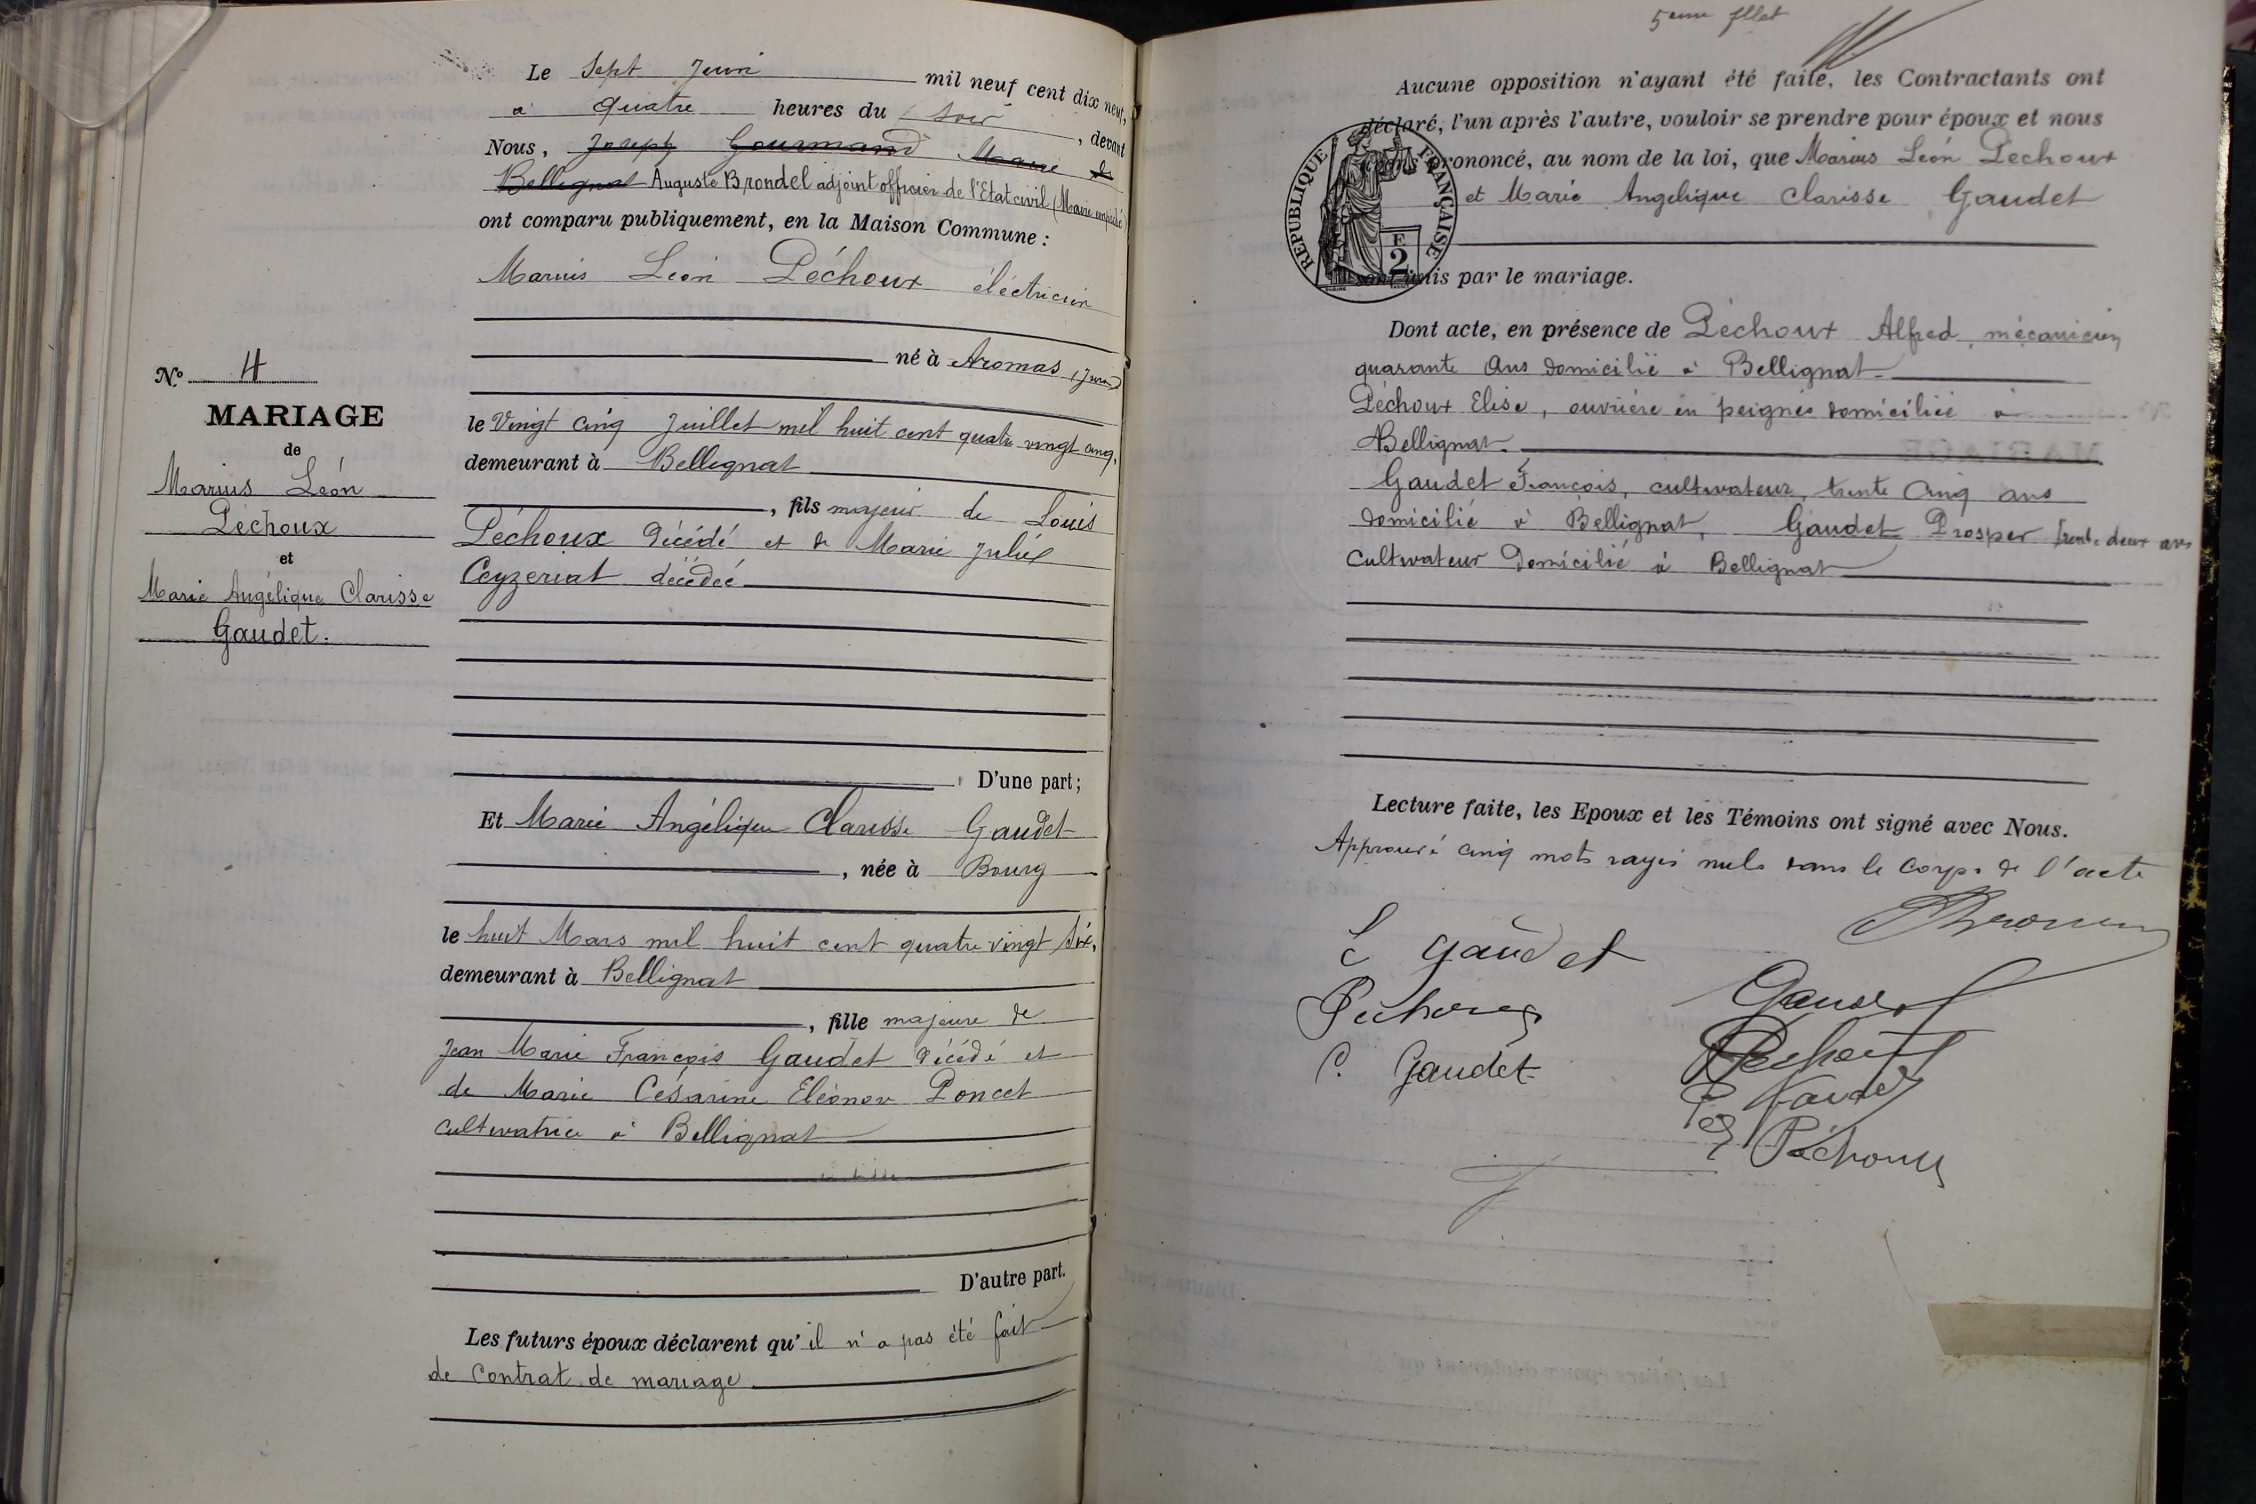 N° 4
MARIAGE
de
Marius Léon
Péchoux
et
Marie Angélique Clarisse
Gaudet.
Le Sept Juin mil neuf cent dix neuf,
à quatre heures du soir, devant
Nous, Joseph Gourmand Maire de
Bellignat Auguste Brondel adjoint officier de l'Etat civil (Maire empêché)
ont comparu publiquement, en la Maison Commune :
Marius Léon Péchoux éléctricien
né à Aromas (Jura)
le Vingt cinq Juillet mil huit cent quatre vingt cinq,
demeurant à Bellignat
, fils majeur de Louis
Péchoux décédé et de Marie Julie
Ceyzeriat décédée
D'une part;
Et Marie Angélique Clarisse Gaudet
, née à Bourg
le huit Mars mil huit cent quatre vingt six,
demeurant à Bellignat
, fille majeure de
Jean Marie François Gaudet décédé et
de Marie Césarine Eléonor Poncet
cultivatrice à Bellignat
D'autre part.
Les futurs époux déclarent qu'il n'a pas été fait
de contrat de mariage
5eme fllet
Aucune opposition n'ayant été faite, les Contractants ont
déclaré, l'un après l'autre, vouloir se prendre pour époux et nous
avons prononcé, au nom de la loi, que Marius Léon Péchoux
et Marie Angélique Clarisse Gaudet
sont unis par le mariage.
RÉPUBLIQUE FRANÇAISE
E
2
Dont acte, en présence de Péchoux Alfred, mécanicien
quarante ans domicilié à Bellignat
Péchoux Elise, ouvrière en peignes domiciliée à
Bellignat.
Gaudet François, cultivateur, trente cinq ans
domicilié à Bellignat, Gaudet Prosper trente deux ans
cultivateur domicilié à Bellignat
Lecture faite, les Epoux et les Témoins ont signé avec Nous.
Approuvé cinq mots rayés nuls dans le corps de l'acte
Gaudet
Péchoux
C. Gaudet
Gaudet
Péchoux
Péchoux